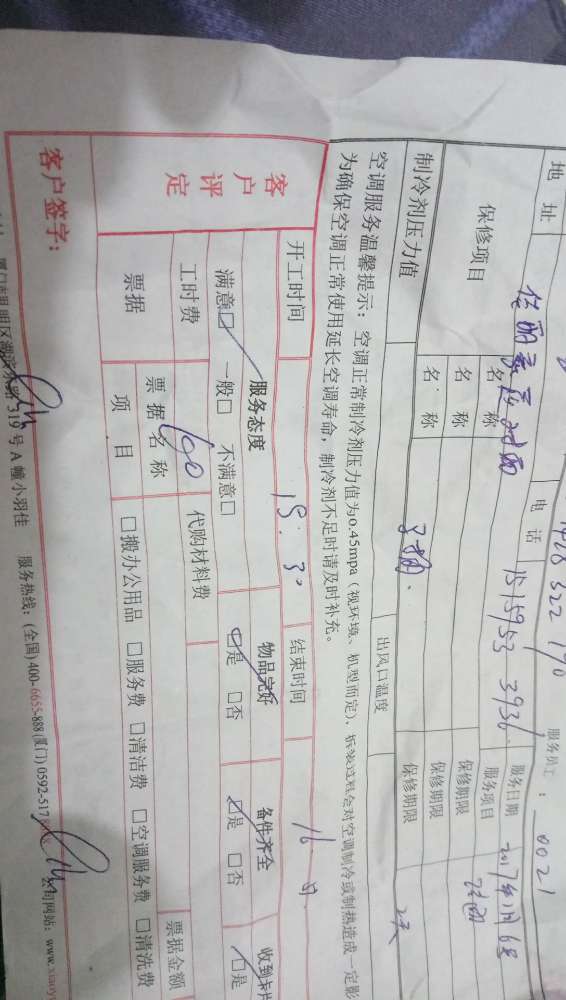 服务员工：0021
地址 电话 15159533936 服务日期 2017年
保修项目 名称 服务项目
名称 保修期限
名称 保修期限
保修期限
制冷剂压力值 出风口温度
空调服务温馨提示：空调正常制冷剂压力值为0.45mpa（视环境、机型而定），拆装过程会对空调制冷或制热造成一定影
为确保空调正常使用延长空调寿命，制冷剂不足时请及时补充。
客户评定
开工时间 15:30 结束时间 16
服务态度 物品完好 备件齐全 收到卡片
满意☑ 一般□ 不满意□ ☑是 □否 ☑是 □否 ☑是
工时费 代购材料费
票据 票据名称 票据金额
项目 □搬办公用品 □服务费 □清洁费 □空调服务费 □清洗费
客户签字：
319号A幢小羽佳 服务热线：(全国)400-6655-888(厦门)0592-517 公司网站：www.xiaoy